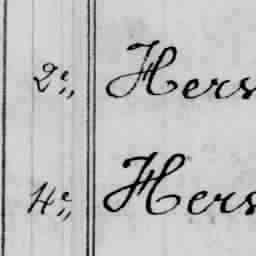 2e„ Hers
4e„ Hers